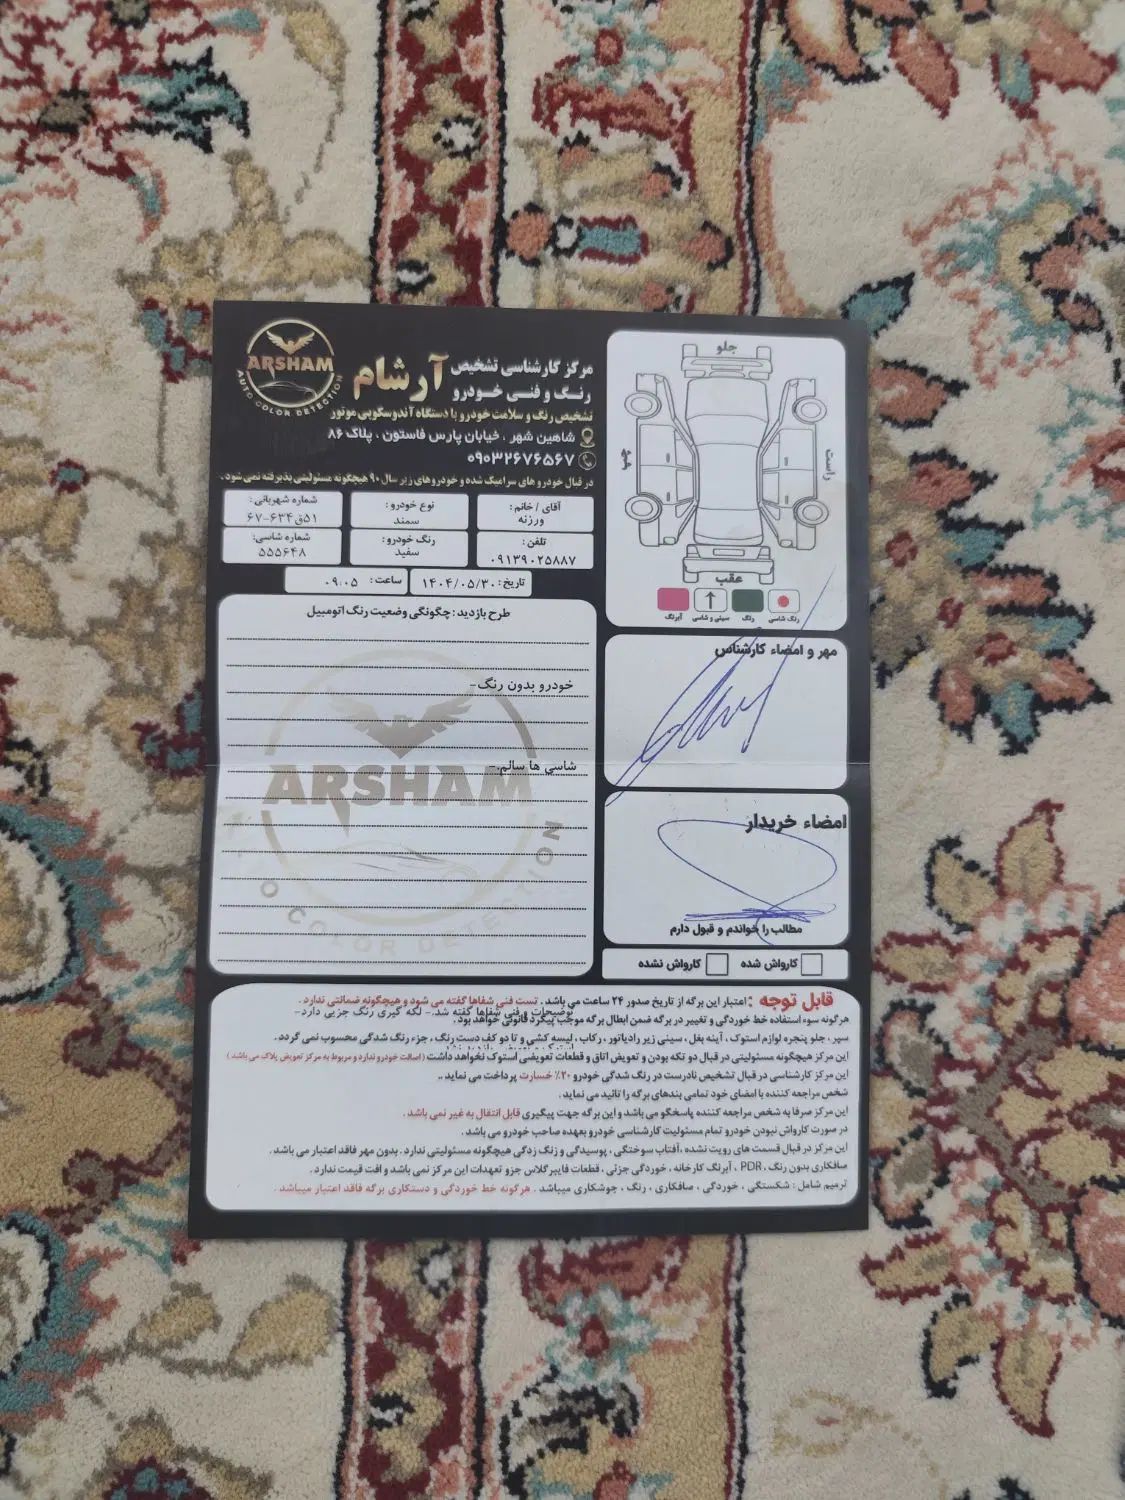 ARSHAM
AUTO COLOR DETECTION
مرکز کارشناسی تشخیص
رنگ و فنی خودرو
آرشام
تشخیص رنگ و سلامت خودرو با دستگاه آندوسکوپی موتور
شاهین شهر ، خیابان پارس فاستون ، پلاک ۸۶
۰۹۰۳۲۶۷۶۵۶۷
در قبال خودرو های سرامیک شده و خودروهای زیر سال ۹۰ هیچگونه مسئولیتی پذیرفته نمی شود.
آقای / خانم :
ورزنه
نوع خودرو :
سمند
شماره شهربانی :
۵۱ق۶۳۴-۶۷
تلفن :
۰۹۱۳۹۰۲۵۸۸۷
رنگ خودرو :
سفید
شماره شاسی:
۵۵۵۶۴۸
تاریخ: ۱۴۰۴/۰۵/۳۰
ساعت: ۰۹:۰۵
طرح بازدید : چگونگی وضعیت رنگ اتومبیل
خودرو بدون رنگ-
شاسی ها سالم.-
ARSHAM
AUTO COLOR DETECTION
جلو
راست
چپ
عقب
رنگ شاسی
رنگ
سینی و شاسی
آبرنگ
مهر و امضاء کارشناس
امضاء خریدار
مطالب را خواندم و قبول دارم
کارواش شده
کارواش نشده
قابل توجه : اعتبار این برگه از تاریخ صدور ۲۴ ساعت می باشد . تست فنی شفاها گفته می شود و هیچگونه ضمانتی ندارد .
توضیحات و فنی شفاها گفته شد.- لکه گیری رنگ جزیی دارد-
هرگونه سوء استفاده خط خوردگی و تغییر در برگه ضمن ابطال برگه موجب پیگرد قانونی خواهد بود.
سپر، جلو پنجره لوازم استوک ، آینه بغل ، سینی زیر رادیاتور ، رکاب ، لیسه کشی و تا دو کف دست رنگ ، جزء رنگ شدگی محسوب نمی گردد .
این مرکز هیچگونه مسئولیتی در قبال دو تکه بودن و تعویض اتاق و قطعات تعویضی استوک نخواهد داشت (اصالت خودرو ندارد و مربوط به مرکز تعویض پلاک می باشد )
این مرکز کارشناسی در قبال تشخیص نادرست در رنگ شدگی خودرو ۲۰٪ خسارت پرداخت می نماید ..
شخص مراجعه کننده با امضای خود تمامی بندهای برگه را تائید می نماید .
این مرکز صرفا به شخص مراجعه کننده پاسخگو می باشد و این برگه جهت پیگیری قابل انتقال به غیر نمی باشد .
در صورت کارواش نبودن خودرو تمام مسئولیت کارشناسی خودرو بعهده صاحب خودرو می باشد .
این مرکز در قبال قسمت های رویت نشده ،آفتاب سوختگی ، پوسیدگی و زنگ زدگی هیچگونه مسئولیتی ندارد . بدون مهر فاقد اعتبار می باشد .
صافکاری بدون رنگ ، PDR ، آبرنگ کارخانه ، خوردگی جزئی ، قطعات فایبرگلاس جزو تعهدات این مرکز نمی باشد و افت قیمت ندارد .
ترمیم شامل : شکستگی ، خوردگی ، صافکاری ، رنگ ، جوشکاری میباشد . هرگونه خط خوردگی و دستکاری برگه فاقد اعتبار میباشد .